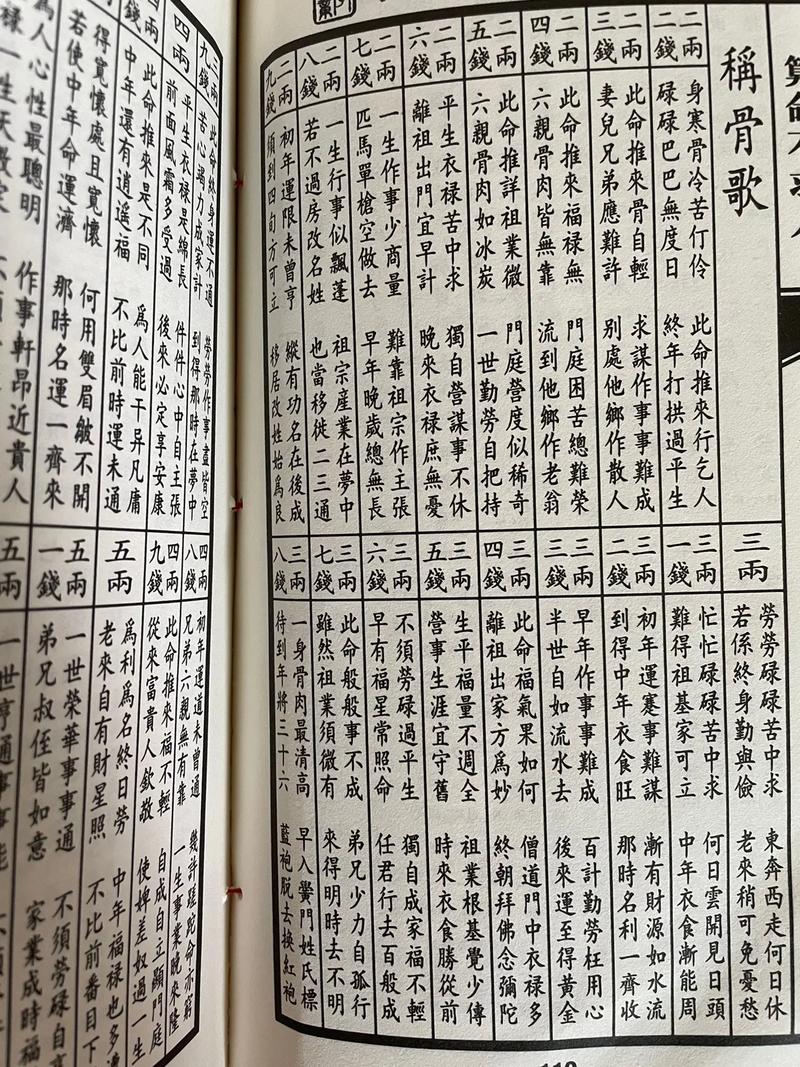 算命不求人
稱骨歌
二兩二錢
身寒骨冷苦仃伶 此命推來行乞人
碌碌巴巴無度日 終年打拱過平生
二兩三錢
此命推來骨自輕 求謀作事事難成
妻兒兄弟應難許 別處他鄉作散人
二兩四錢
此命推來福祿無 門庭困苦總難榮
六親骨肉皆無靠 流到他鄉作老翁
二兩五錢
此命推詳祖業微 門庭營度似稀奇
六親骨肉如冰炭 一世勤勞自把持
二兩六錢
平生衣祿苦中求 獨自營謀事不休
離祖出門宜早計 晚來衣祿庶無憂
二兩七錢
一生作事少商量 難靠祖宗作主張
匹馬單槍空做去 早年晚歲總無長
二兩八錢
一生行事似飄蓬 祖宗產業在夢中
若不過房改名姓 也當移徙二三通
二兩九錢
初年運限未曾亨 縱有功名在後成
須到四旬方可立 移居改姓始為良
三兩
勞勞碌碌苦中求 東奔西走何日休
若係終身勤與儉 老來稍可免憂愁
三兩一錢
忙忙碌碌苦中求 何日雲開見日頭
難得祖基家可立 中年衣食漸能周
三兩二錢
初年運蹇事難謀 漸有財源如水流
到得中年衣食旺 那時名利一齊收
三兩三錢
早年作事事難成 百計勤勞枉用心
半世自如流水去 後來運至得黃金
三兩四錢
此命福氣果如何 僧道門中衣祿多
離祖出家方為妙 終朝拜佛念彌陀
三兩五錢
生平福量不週全 祖業根基覺少傳
營事生涯宜守舊 時來衣食勝從前
三兩六錢
不須勞碌過平生 獨自成家福不輕
早有福星常照命 任君行去百般成
三兩七錢
此命般般事不成 弟兄少力自孤行
雖然祖業須微有 來得明時去不明
三兩八錢
一身骨肉最清高 早入黌門姓氏標
待到年將三十六 藍袍脫去換紅袍
三兩九錢
此命終身運不通 勞勞作事盡皆空
苦心竭力成家計 到得那時在夢中
四兩
平生衣祿是綿長 件件心中自主張
前面風霜多受過 後來必定享安康
四兩
錢
此命推來是不同 為人能干异凡庸
中年還有逍遙福 不比前時運未通
得寬懷處且寬懷 何用雙眉皺不開
若使中年命運濟 那時名運一齊來
為人心性最聰明 作事軒昂近貴人
祿一生天數定
四兩八錢
初年運道未曾通 幾許蹉跎命亦窮
兄弟六親無有靠 一生事業晚來隆
四兩九錢
此命推來福不輕 自成自立顯門庭
從來富貴人欽敬 使婢差奴過一生
五兩
為利為名終日勞 中年福祿也多遭
老來自有財星照 不比前番目下
五兩一錢
一世榮華事事通 不須勞碌自
弟兄叔侄皆如意 家業成時福
五兩
一世亨通事事能